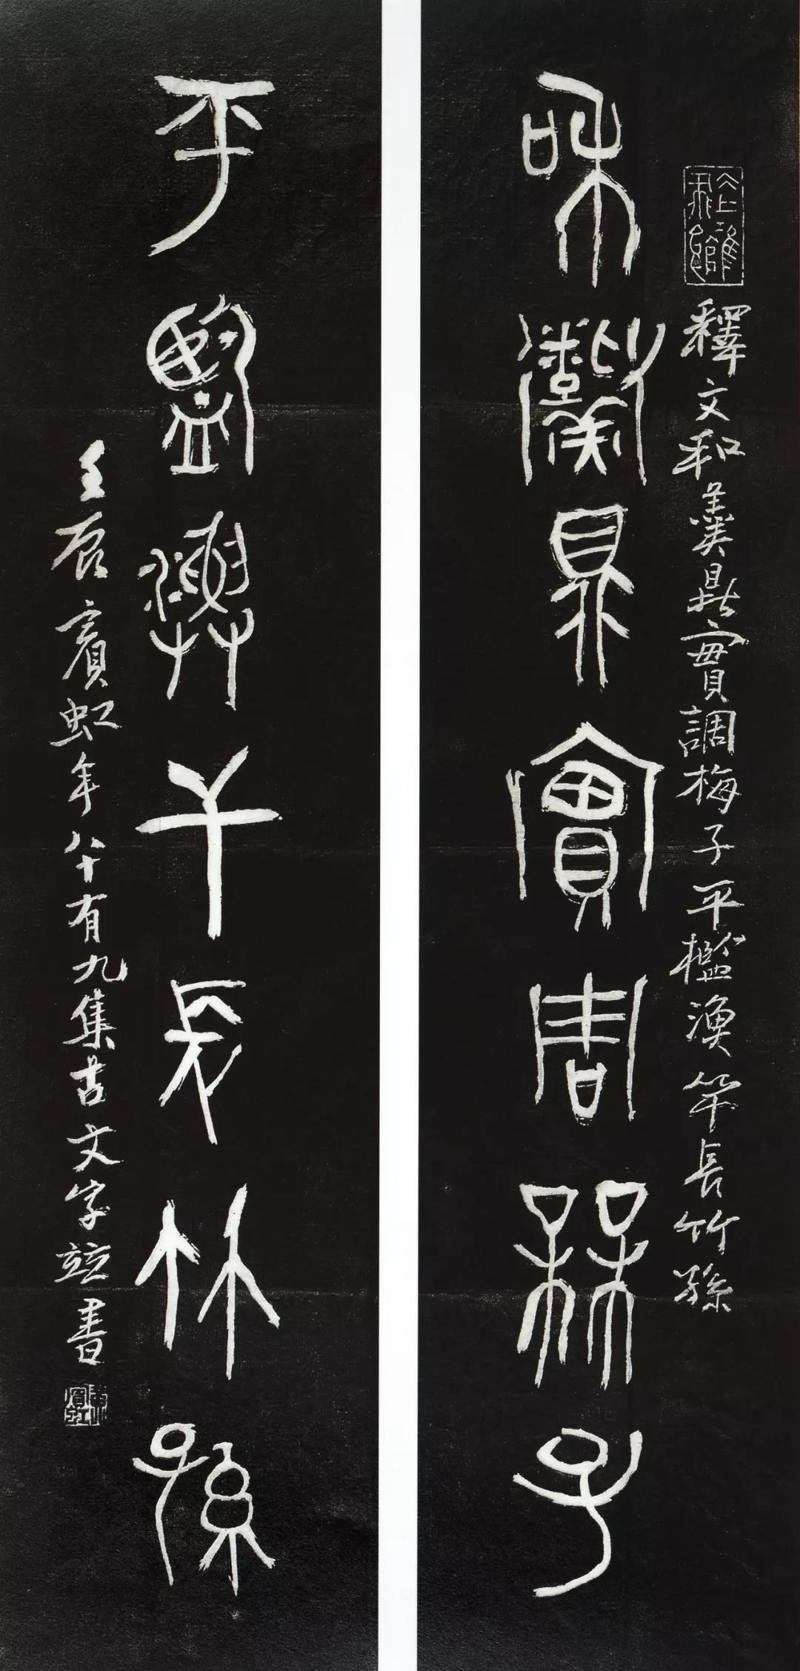 和羹鼎實調梅子
釋文和羹鼎實調梅子平檻漁竿長竹孫
平檻漁竿長竹孫
壬辰賓虹年八十有九集古文字並書